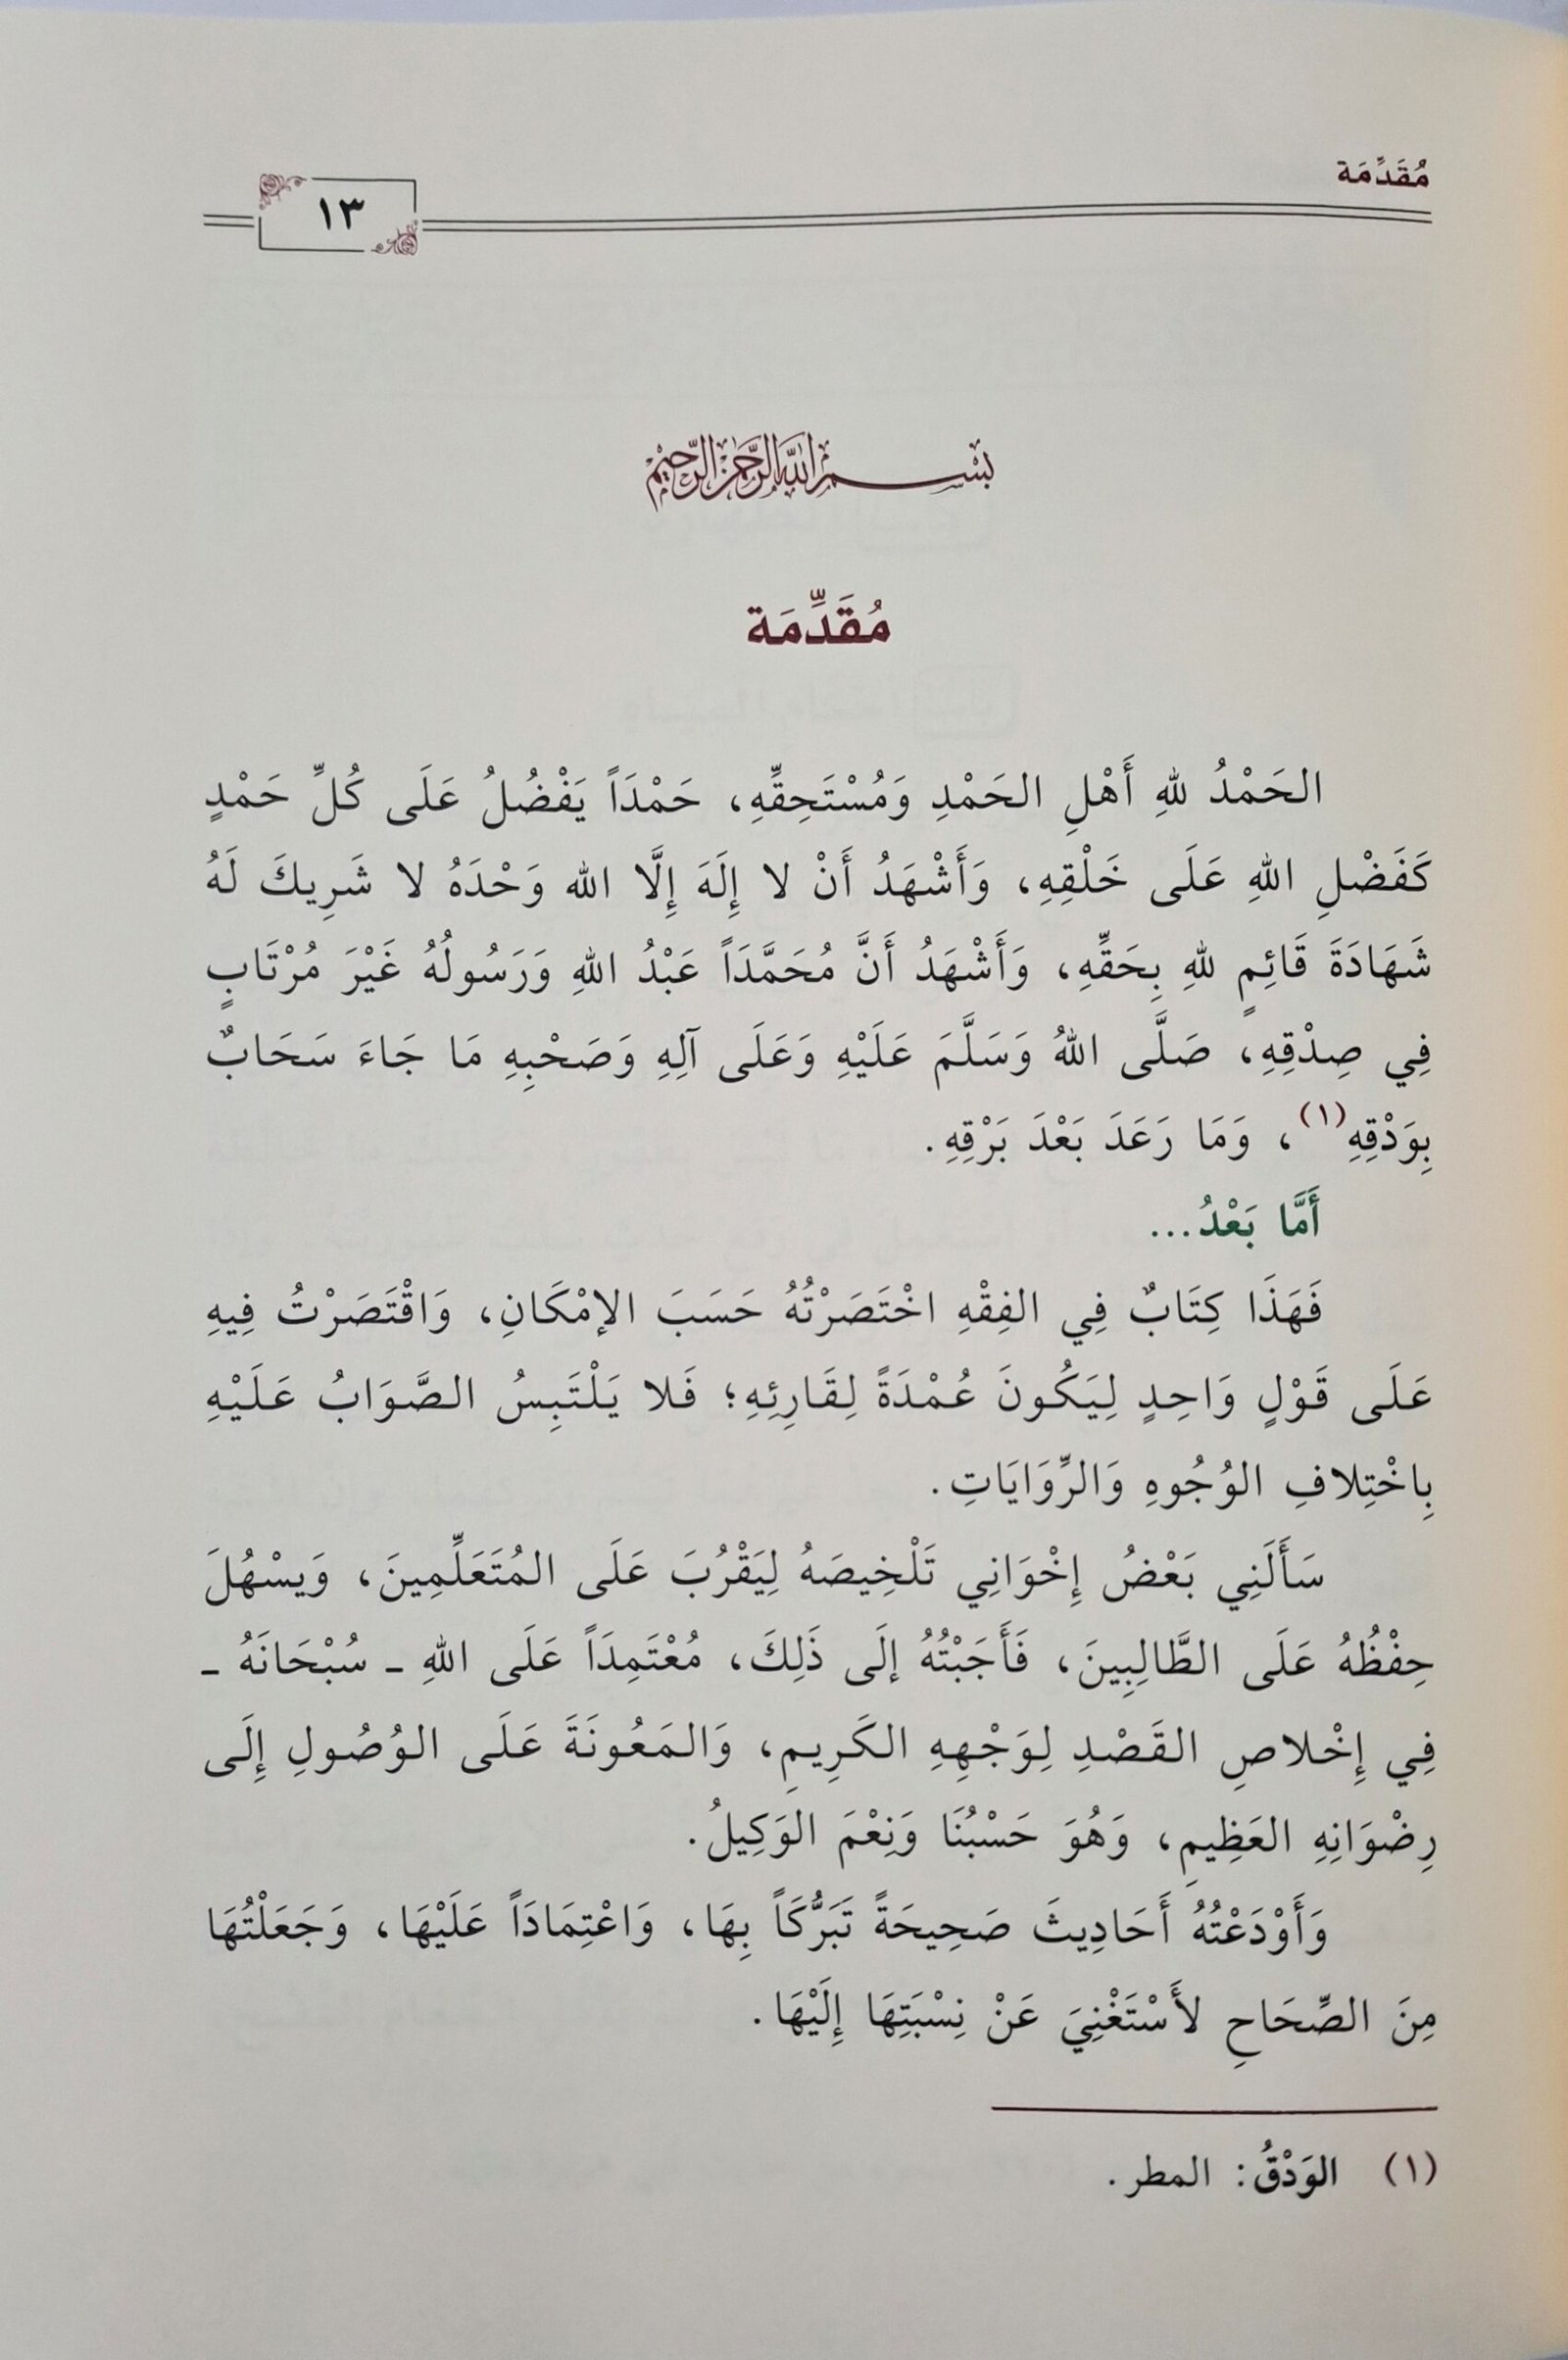 مُقَدِّمَة
١٣
بِسْمِ اللهِ الرَّحْمٰنِ الرَّحِيمِ
مُقَدِّمَة
الحَمْدُ للهِ أَهْلِ الحَمْدِ وَمُسْتَحِقِّهِ، حَمْدَاً يَفْضُلُ عَلَى كُلِّ حَمْدٍ
كَفَضْلِ اللهِ عَلَى خَلْقِهِ، وَأَشْهَدُ أَنْ لا إِلَهَ إِلَّا الله وَحْدَهُ لا شَرِيكَ لَهُ
شَهَادَةَ قَائِمٍ للهِ بِحَقِّهِ، وَأَشْهَدُ أَنَّ مُحَمَّدَاً عَبْدُ اللهِ وَرَسُولُهُ غَيْرَ مُرْتَابٍ
فِي صِدْقِهِ، صَلَّى اللهُ وَسَلَّمَ عَلَيْهِ وَعَلَى آلِهِ وَصَحْبِهِ مَا جَاءَ سَحَابٌ
بِوَدْقِهِ(١)، وَمَا رَعَدَ بَعْدَ بَرْقِهِ.
أَمَّا بَعْدُ...
فَهَذَا كِتَابٌ فِي الفِقْهِ اخْتَصَرْتُهُ حَسَبَ الإمْكَانِ، وَاقْتَصَرْتُ فِيهِ
عَلَى قَوْلٍ وَاحِدٍ لِيَكُونَ عُمْدَةً لِقَارِئِهِ؛ فَلا يَلْتَبِسُ الصَّوَابُ عَلَيْهِ
بِاخْتِلافِ الوُجُوهِ وَالرِّوَايَاتِ.
سَأَلَنِي بَعْضُ إِخْوَانِي تَلْخِيصَهُ لِيَقْرُبَ عَلَى المُتَعَلِّمِينَ، وَيسْهُلَ
حِفْظُهُ عَلَى الطَّالِبِينَ، فَأَجَبْتُهُ إلَى ذَلِكَ، مُعْتَمِدَاً عَلَى اللهِ ـ سُبْحَانَهُ ـ
فِي إِخْلاصِ القَصْدِ لِوَجْهِهِ الكَرِيمِ، وَالمَعُونَةَ عَلَى الوُصُولِ إِلَى
رِضْوَانِهِ العَظِيمِ، وَهُوَ حَسْبُنَا وَنِعْمَ الوَكِيلُ.
وَأَوْدَعْتُهُ أَحَادِيثَ صَحِيحَةً تَبَرُّكَاً بِهَا، وَاعْتِمَادَاً عَلَيْهَا، وَجَعَلْتُهَا
مِنَ الصِّحَاحِ لأَسْتَغْنِيَ عَنْ نِسْبَتِهَا إِلَيْهَا.
(١) الوَدْقُ: المطر.